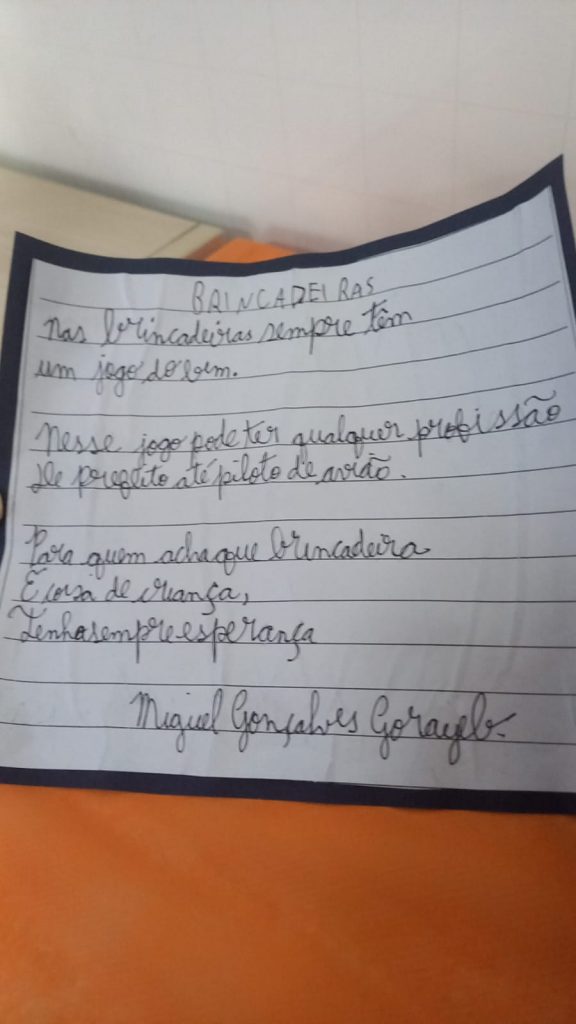 BRINCADEIRAS
Nas brincadeiras sempre têm
um jogo do bem.
Nesse jogo pode ter qualquer profissão
De prefeito até piloto de avião.
Para quem acha que brincadeira
É coisa de criança,
Tenha sempre esperança
Miguel Gonçalves Gorayeb.